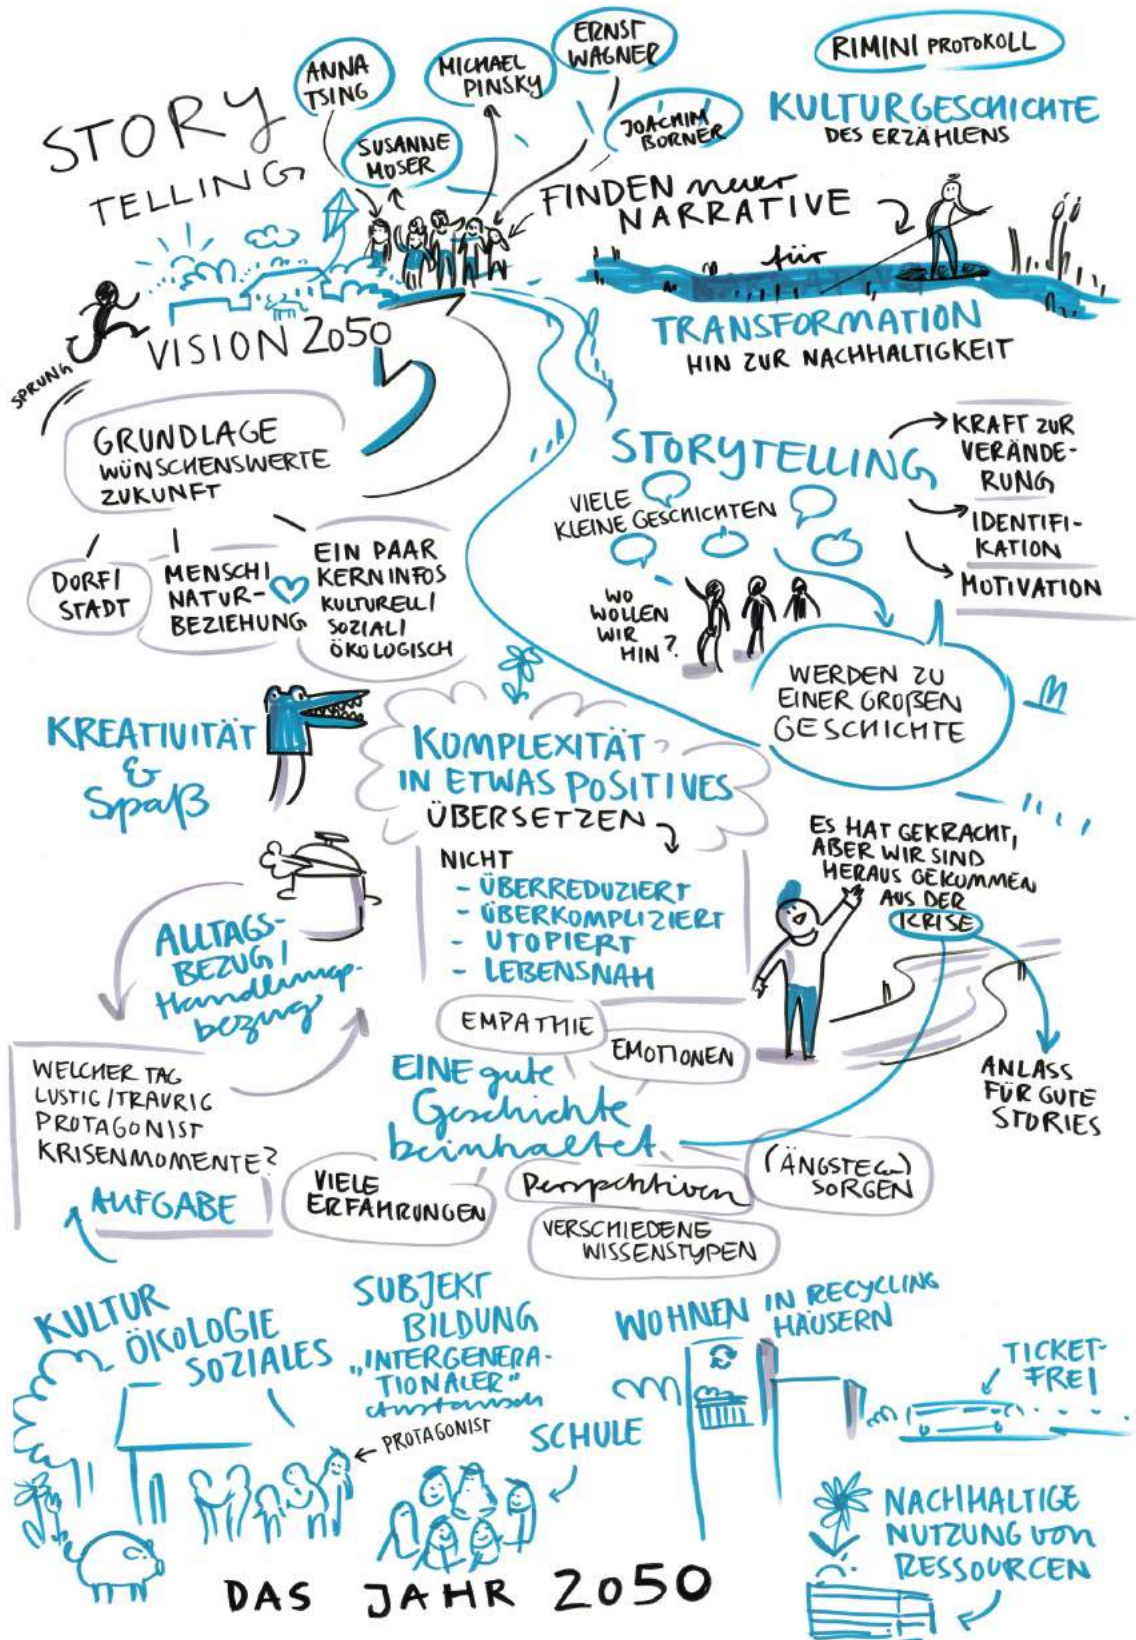 STORY
TELLING
ANNA
TSING
SUSANNE
MOSER
MICHAEL
PINSKY
ERNST
WAGNER
JOACHIM
BORNER
RIMINI PROTOKOLL
KULTURGESCHICHTE
DES ERZÄHLENS
FINDEN neuer
NARRATIVE
für
TRANSFORMATION
HIN ZUR NACHHALTIGKEIT
SPRUNG
VISION 2050
GRUNDLAGE
WÜNSCHENSWERTE
ZUKUNFT
DORF/
STADT
MENSCH/
NATUR-
BEZIEHUNG
EIN PAAR
KERNINFOS
KULTURELL/
SOZIAL/
ÖKOLOGISCH
STORYTELLING
KRAFT ZUR
VERÄNDE-
RUNG
IDENTIFI-
KATION
MOTIVATION
VIELE
KLEINE GESCHICHTEN
WO
WOLLEN
WIR
HIN?
WERDEN ZU
EINER GROẞEN
GESCHICHTE
KREATIVITÄT
&
Spaß
KOMPLEXITÄT
IN ETWAS POSITIVES
ÜBERSETZEN
NICHT
- ÜBERREDUZIERT
- ÜBERKOMPLIZIERT
- UTOPIERT
- LEBENSNAH
ES HAT GEKRACHT,
ABER WIR SIND
HERAUS GEKOMMEN
AUS DER
KRISE
ANLASS
FÜR GUTE
STORIES
ALLTAGS-
BEZUG/
Handlungs-
bezug
WELCHER TAG
LUSTIG/TRAURIG
PROTAGONIST
KRISENMOMENTE?
AUFGABE
EMPATHIE
EMOTIONEN
EINE gute
Geschichte
beinhaltet
VIELE
ERFAHRUNGEN
Perspektiven
VERSCHIEDENE
WISSENSTYPEN
SORGEN
KULTUR
ÖKOLOGIE
SOZIALES
SUBJEKT
BILDUNG
„INTERGENERA-
TIONALER"
Austausch
PROTAGONIST
SCHULE
WOHNEN IN RECYCLING
HÄUSERN
TICKET-
FREI
NACHHALTIGE
NUTZUNG von
RESSOURCEN
DAS JAHR 2050